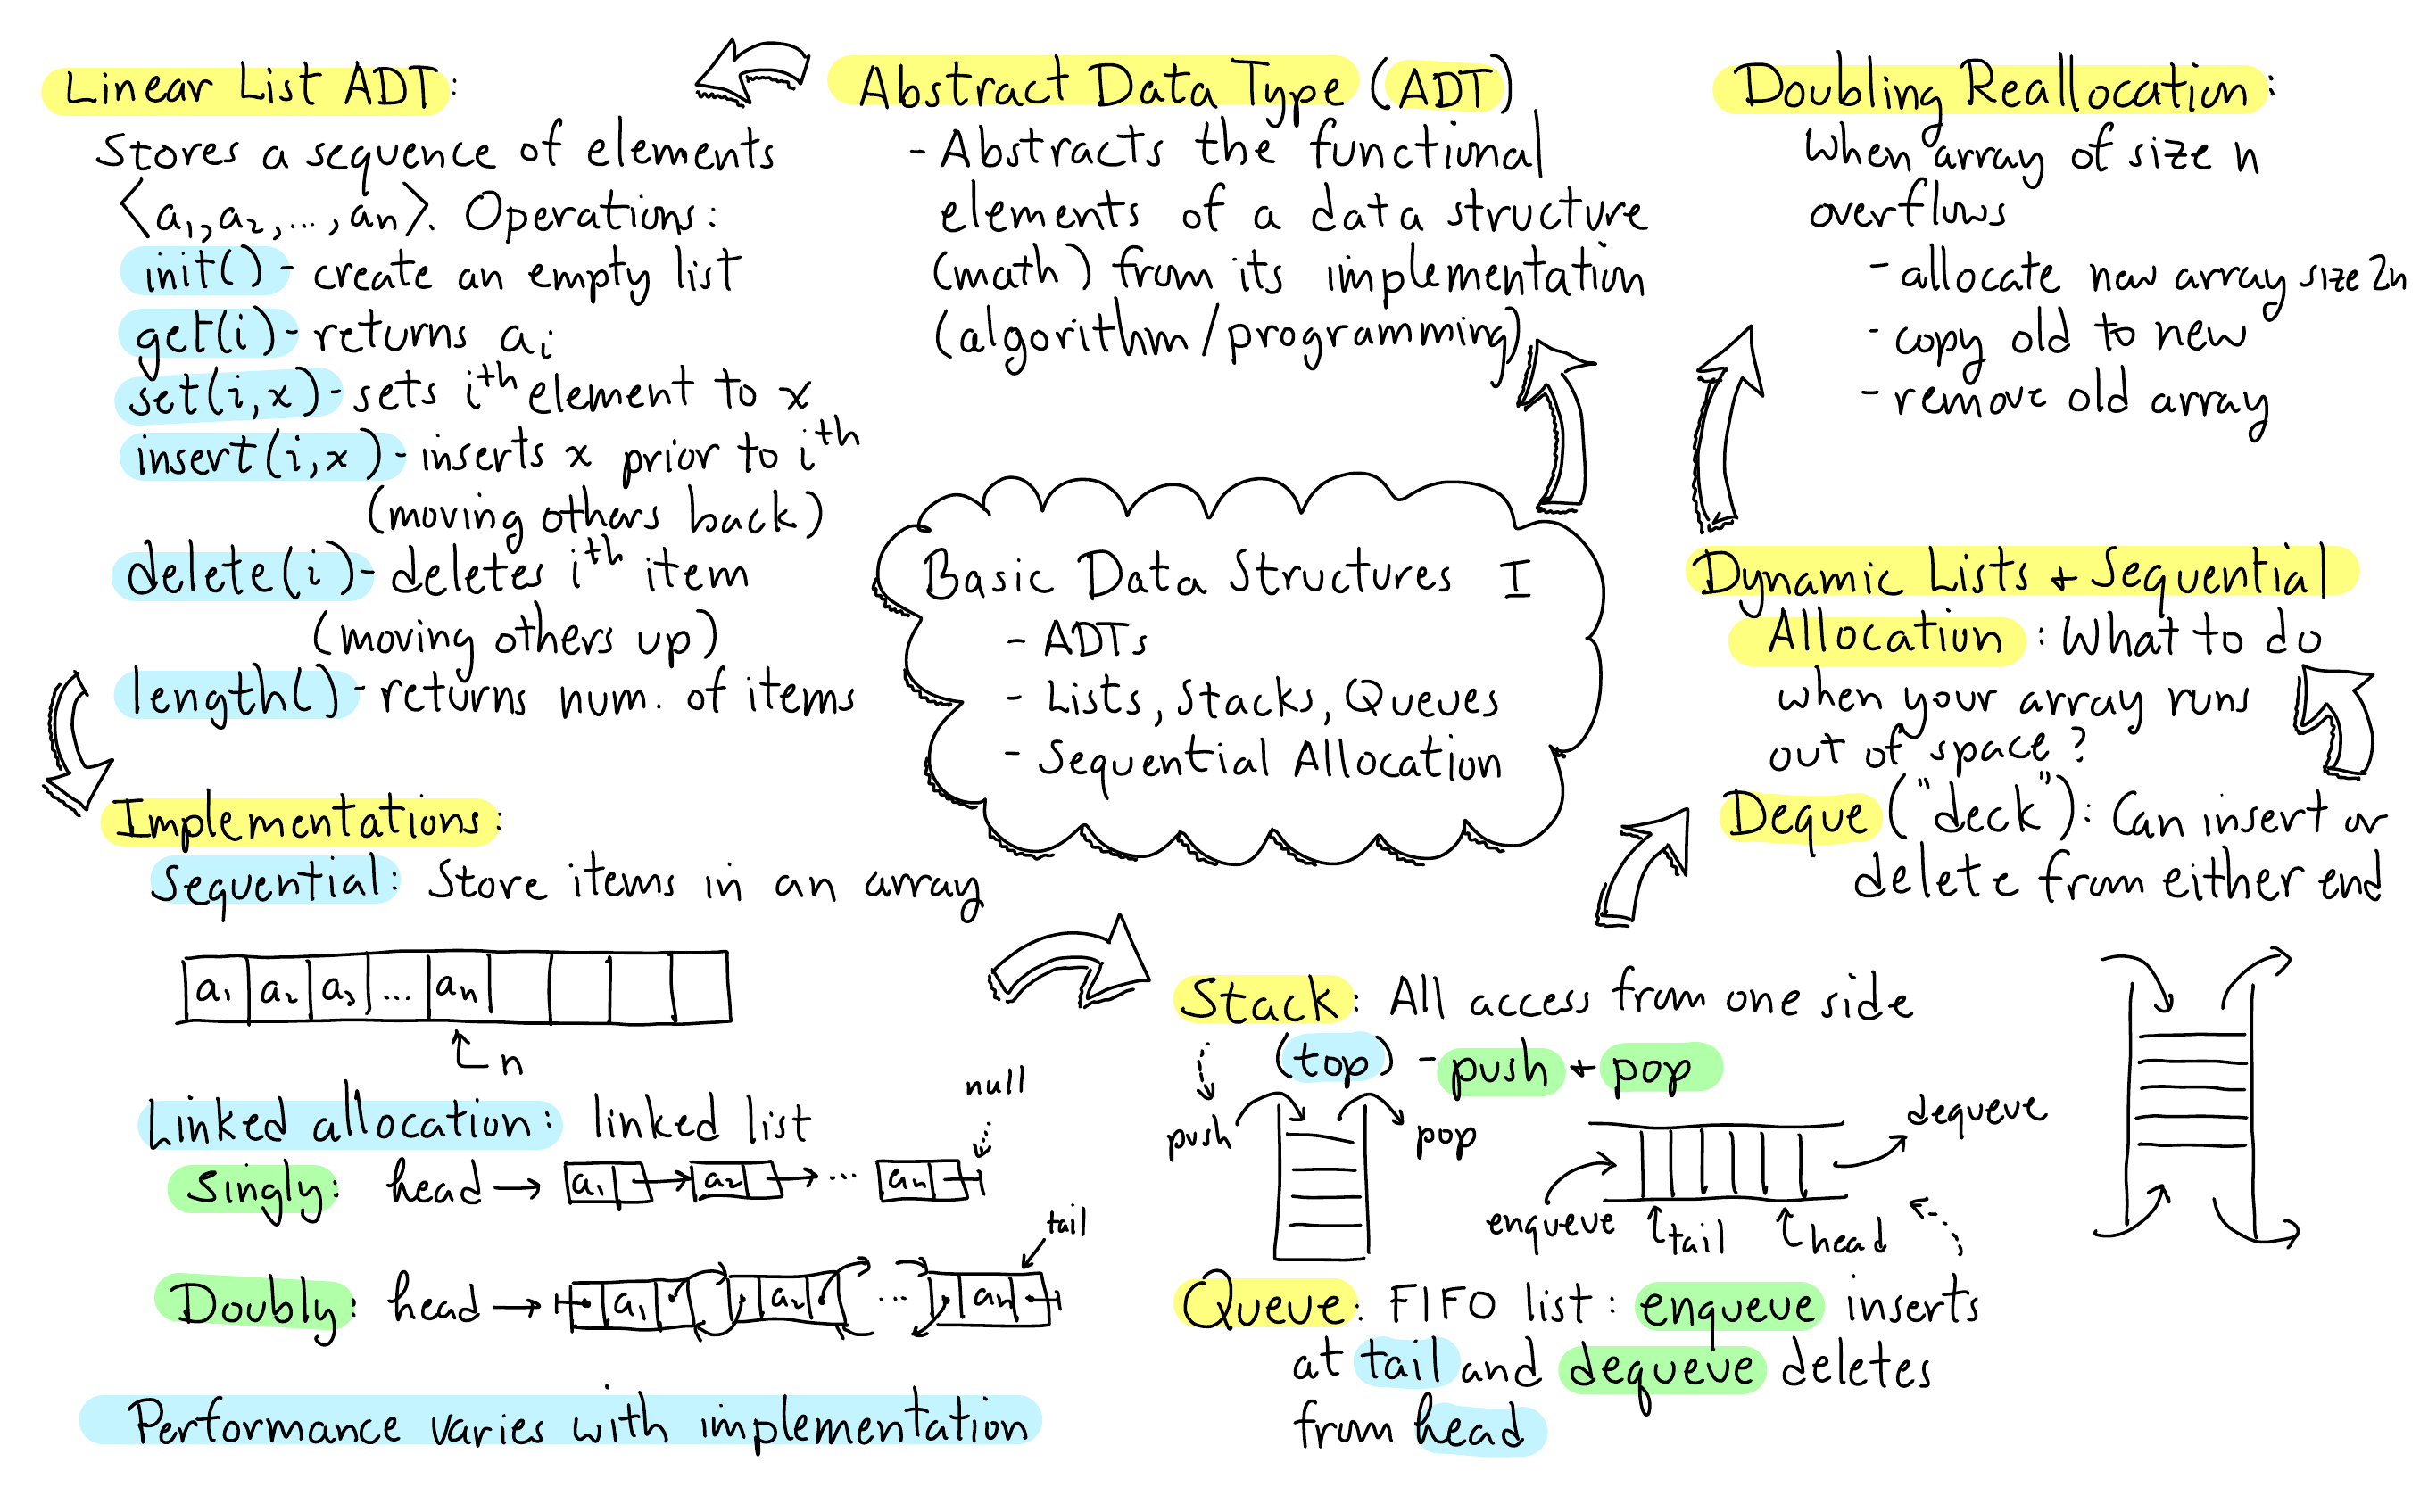 Basic Data Structures I
- ADTs
- Lists, Stacks, Queues
- Sequential Allocation
Abstract Data Type (ADT)
- Abstracts the functional
elements of a data structure
(math) from its implementation
(algorithm/programming)
Linear List ADT:
Stores a sequence of elements
⟨a₁, a₂, ..., aₙ⟩. Operations:
init() - create an empty list
get(i) - returns aᵢ
set(i,x) - sets iᵗʰ element to x
insert(i,x) - inserts x prior to iᵗʰ
(moving others back)
delete(i) - deletes iᵗʰ item
(moving others up)
length() - returns num. of items
Implementations:
Sequential: Store items in an array
a₁ a₂ a₃ ... aₙ
n
Linked allocation: linked list
null
Singly: head → a₁ → a₂ → ... aₙ
tail
Doubly: head → a₁ a₂ ... aₙ
Performance varies with implementation
Stack: All access from one side
(top) - push + pop
push
pop
dequeue
enqueue
tail
head
Queue: FIFO list: enqueue inserts
at tail and dequeue deletes
from head
Deque ("deck"): Can insert or
delete from either end
Dynamic Lists + Sequential
Allocation: What to do
when your array runs
out of space?
Doubling Reallocation:
When array of size n
overflows
- allocate new array size 2n
- copy old to new
- remove old array